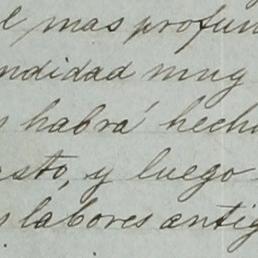 l mas profun
ndidad muy
s habrá hech
asto, y luego
s labores antig